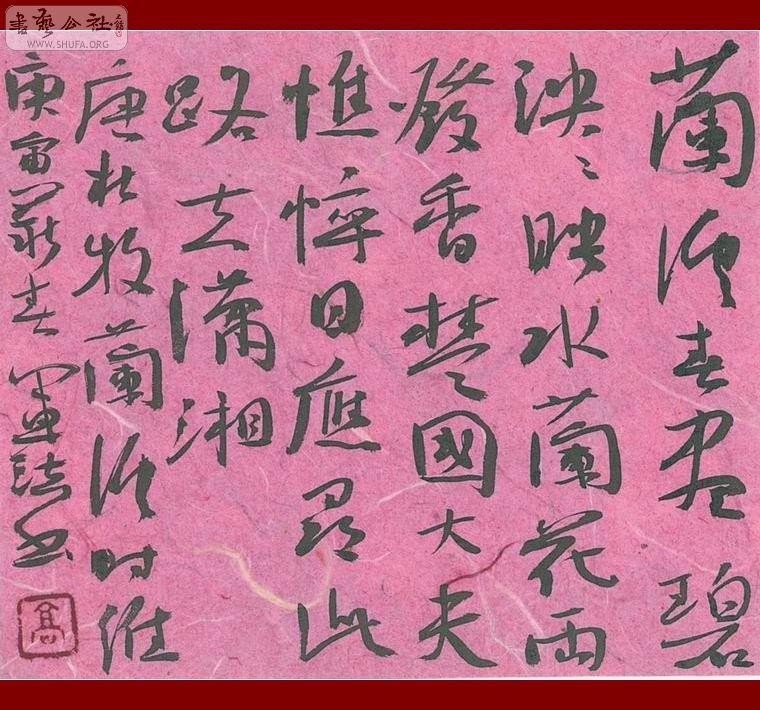 書藝公社
WWW.SHUFA.ORG
蘭溪春盡碧
泱〻映水蘭花雨
發香楚國大夫
憔悴日應尋此
路去瀟湘
唐杜牧蘭溪时維
庚寅春書
高